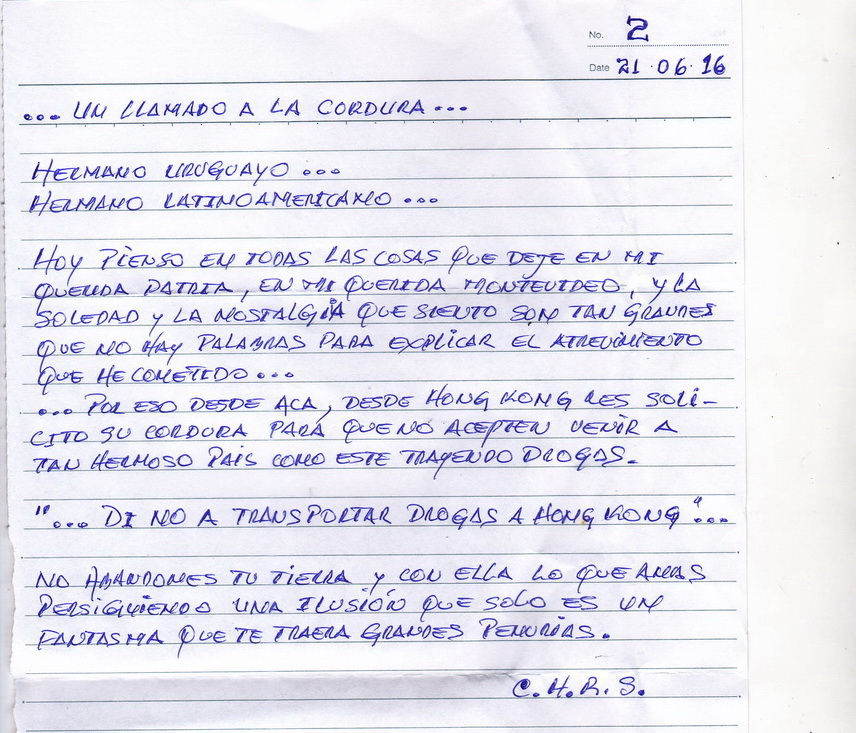 No. 2
Date 21·06·16
... UN LLAMADO A LA CORDURA...
HERMANO URUGUAYO ...
HERMANO LATINOAMERICANO ...
HOY PIENSO EN TODAS LAS COSAS QUE DEJE EN MI
QUERIDA PATRIA, EN MI QUERIDA MONTEVIDEO, Y LA
SOLEDAD Y LA NOSTALGIA QUE SIENTO SON TAN GRANDES
QUE NO HAY PALABRAS PARA EXPLICAR EL ATREVIMIENTO
QUE HE COMETIDO ...
... POR ESO DESDE ACA, DESDE HONG KONG LES SOLI-
CITO SU CORDURA PARA QUE NO ACEPTEN VENIR A
TAN HERMOSO PAIS COMO ESTE TRAYENDO DROGAS.
"... DI NO A TRANSPORTAR DROGAS A HONG KONG"...
NO ABANDONES TU TIERRA Y CON ELLA LO QUE AMAS
PERSIGUIENDO UNA ILUSIÓN QUE SOLO ES UN
FANTASMA QUE TE TRAERA GRANDES PENURIAS.
C.H.R.S.